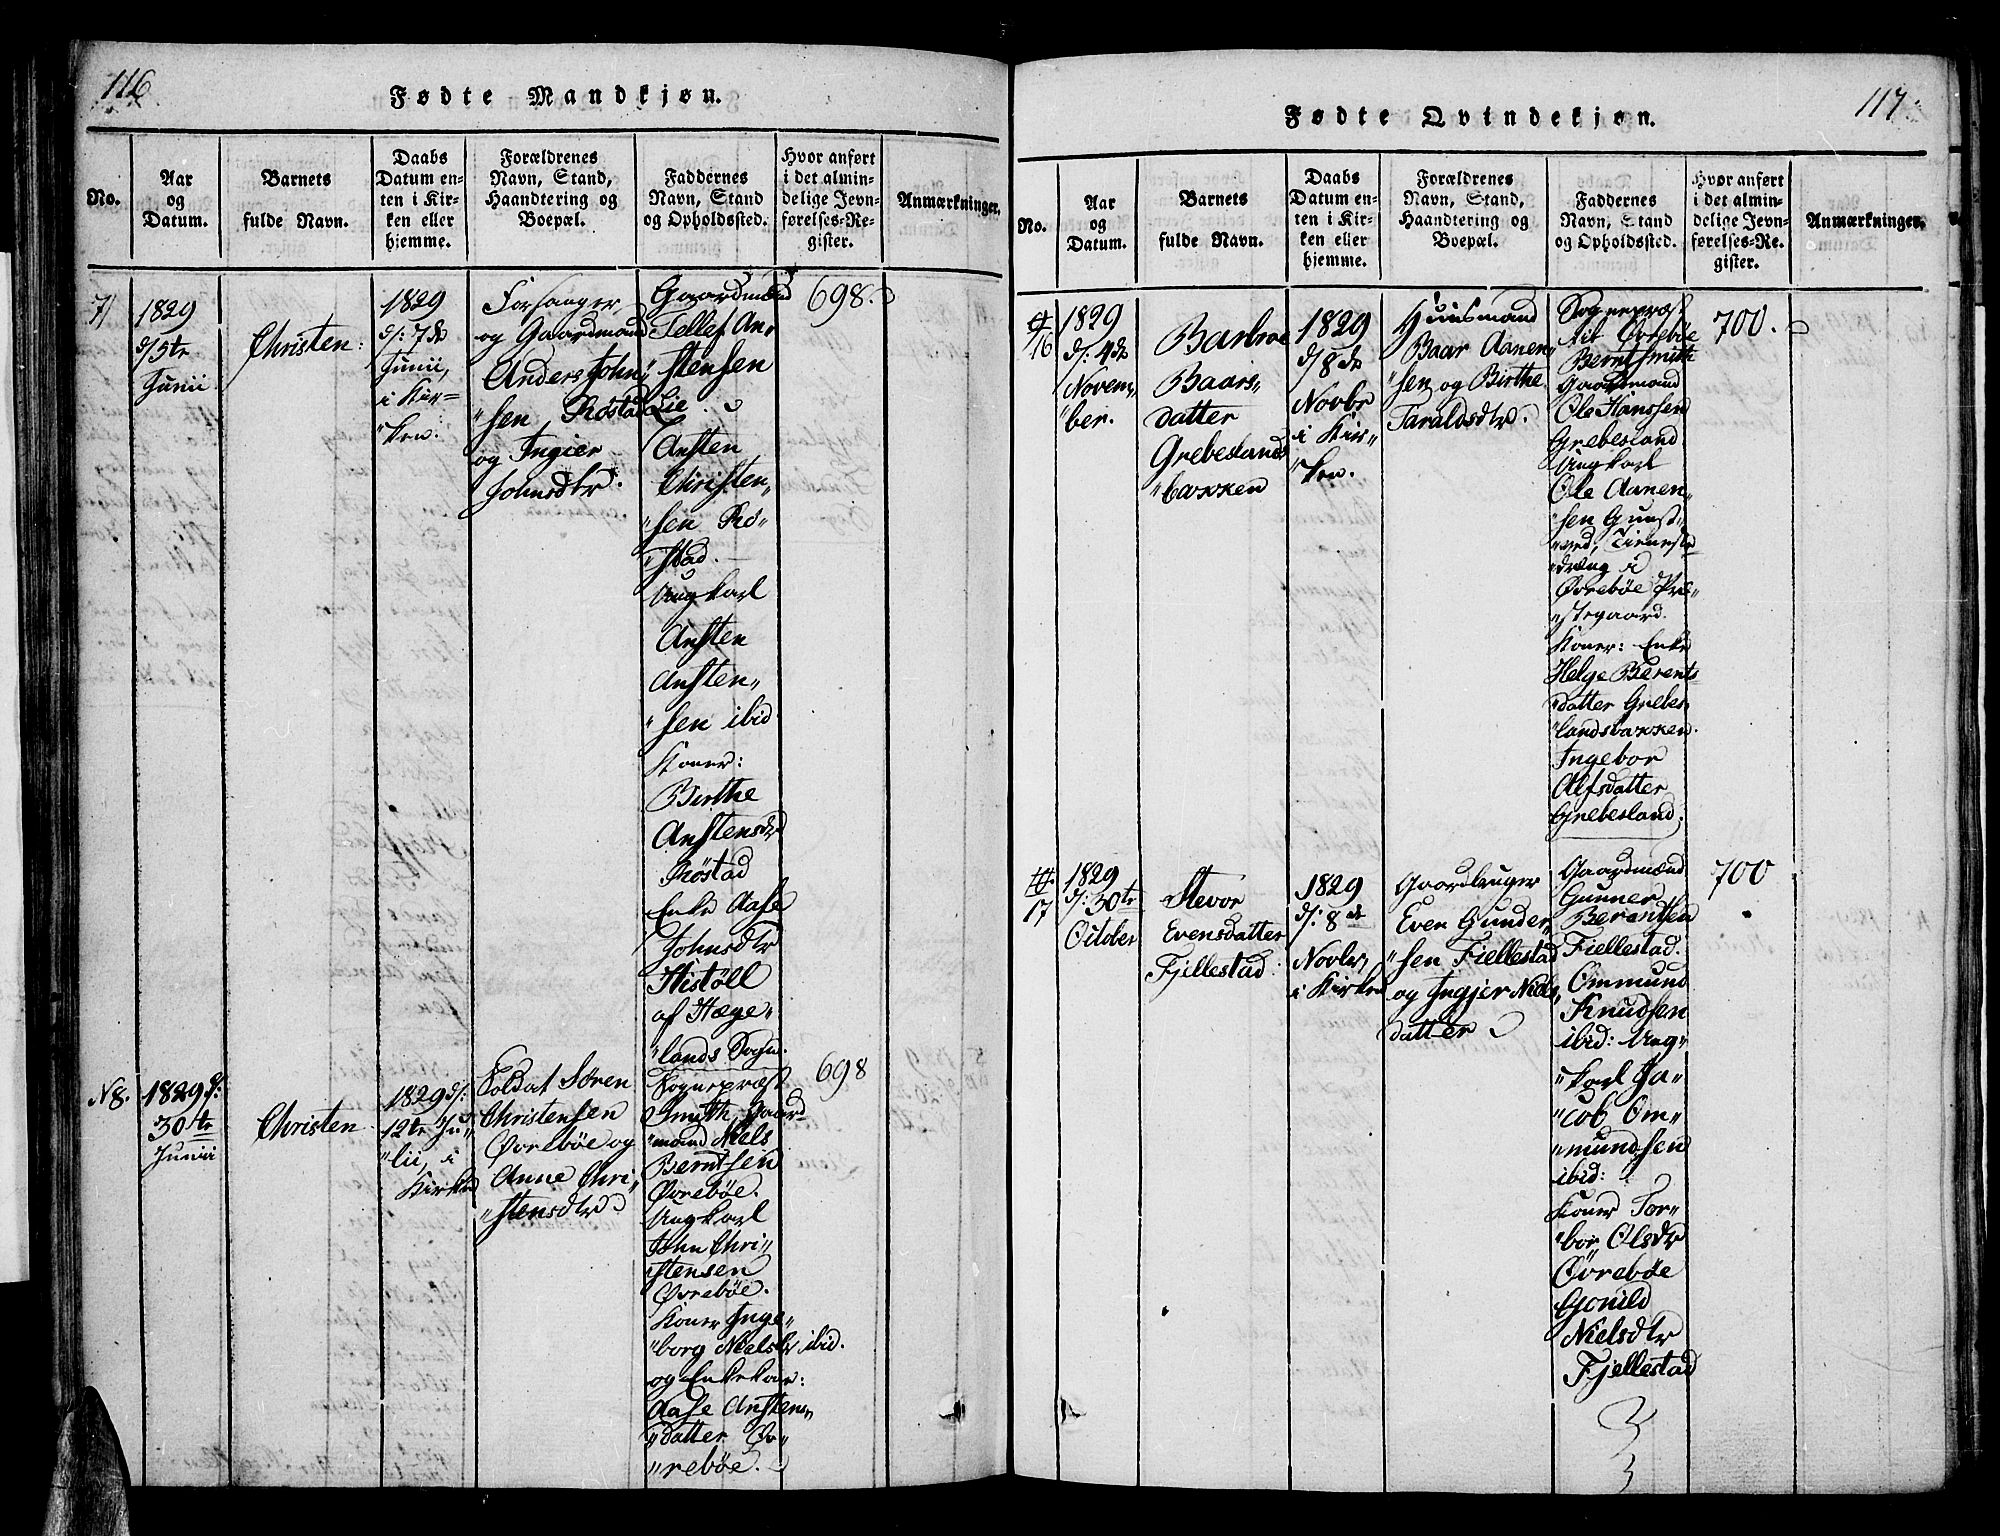 116
Fødte Mandkjøn.
No.
Aar
og
Datum.
Barnets
fulde Navn.
Daabs
Datum en-
ten i Kir-
ken eller
hjemme.
Forældrenes
Navn, Stand,
Haandtering og
Boepæl.
Faddernes
Navn, Stand
og Opholdssted.
Hvor anført
i det almin-
delige Jevn-
førelses-Re-
gister.
Anmærkninger.
7)
1829
d/5te
Junii
Christen.
1829
d/: 7de
Junii,
i Kir=
"ken.
Forsanger
og Gaardmand
Anders John,
"sen Røstad
og Ingier
Johnsdtr.
Gaardmænd
Tellef An,
"stensen
Lie.
Ansten
Christen,
"sen Rø-
"stad.
Ungkarl
Ansten
Ansten,
"sen ibid
Koner:
Birthe
Anstensdtr
Røstad
Enke Aase
Johnsdtr
Histöll
af Hæge,
"lands Sogn.
698.
N8.
1829 d:
30te
Junii
Christen
1829 d/:
12te Ju,
"lii, i
Kirken
Soldat Sören
Christensen
Øvrebøe og
Anne Chri,
"stensdtr
Sognepræst
Smith, Gaard-
"mand Niels
Berntsen
Øvrebøe.
Ungkarl
John Chri,
"stensen
Øvrebøe.
Koner Inge,
"borg Nielsdtr ibid.
og Enkekone:
Aase Ansten,
"datter Øv-
"rebøe.
698
117.
Fødte Qvindekjøn.
No.
Aar
og
Datum.
Barnets
fulde Navn.
Daabs
Datum en-
ten i Kir-
ken eller
hjemme.
Forældrenes
Navn, Stand,
Haandtering og
Boepæl.
Faddernes
Navn, Stand
og Opholdssted.
Hvor anført
i det almin-
delige Jevn-
førelses-Re-
gister.
Anmærkninger.
16
1829
d/: 4de
Novem,
"ber.
Barbroe
Baars,
datter
Grebeslands
"baxxen
1829
d/8de
Novbr
i Kir,
"ken.
Huusmand
Baar Aanen,
"sen og Birthe
Taraldsdtr.
Sognepræst
til Øvrebøe
Bernt Smith
Gaardmand
Ole Hanssen
Grebesland
Ungkarl
Ole Aanen,
"sen Gunst,
"ved, Tieneste
"dreng i
Øvrebøe Præ,
"stegaard.
Koner: Enke
Helge Berents
"datter Grebes,
"landsbaxxen.
Ingebor
Alfsdatter
Grebesland.
700.
17
1829
d/: 30te
October
Stevor
Evensdatter
Fjellestad
1829
d/: 8de
Novbr,
i Kirken
Gaardbruger
Even Gunder,
"sen Fiellestad
og Ingjer Niels,
datter
Gaardmænd
Gunner
Berantsen
Fiellestad.
Ommund
Knudsen
ibid: Ung,
"karl Ja,
"cob Om,
"mundsen
ibid:
Koner Tor,
"bor Olsdtr
Øvrebøe
Gonild
Nielsdtr
Fjellestad
700